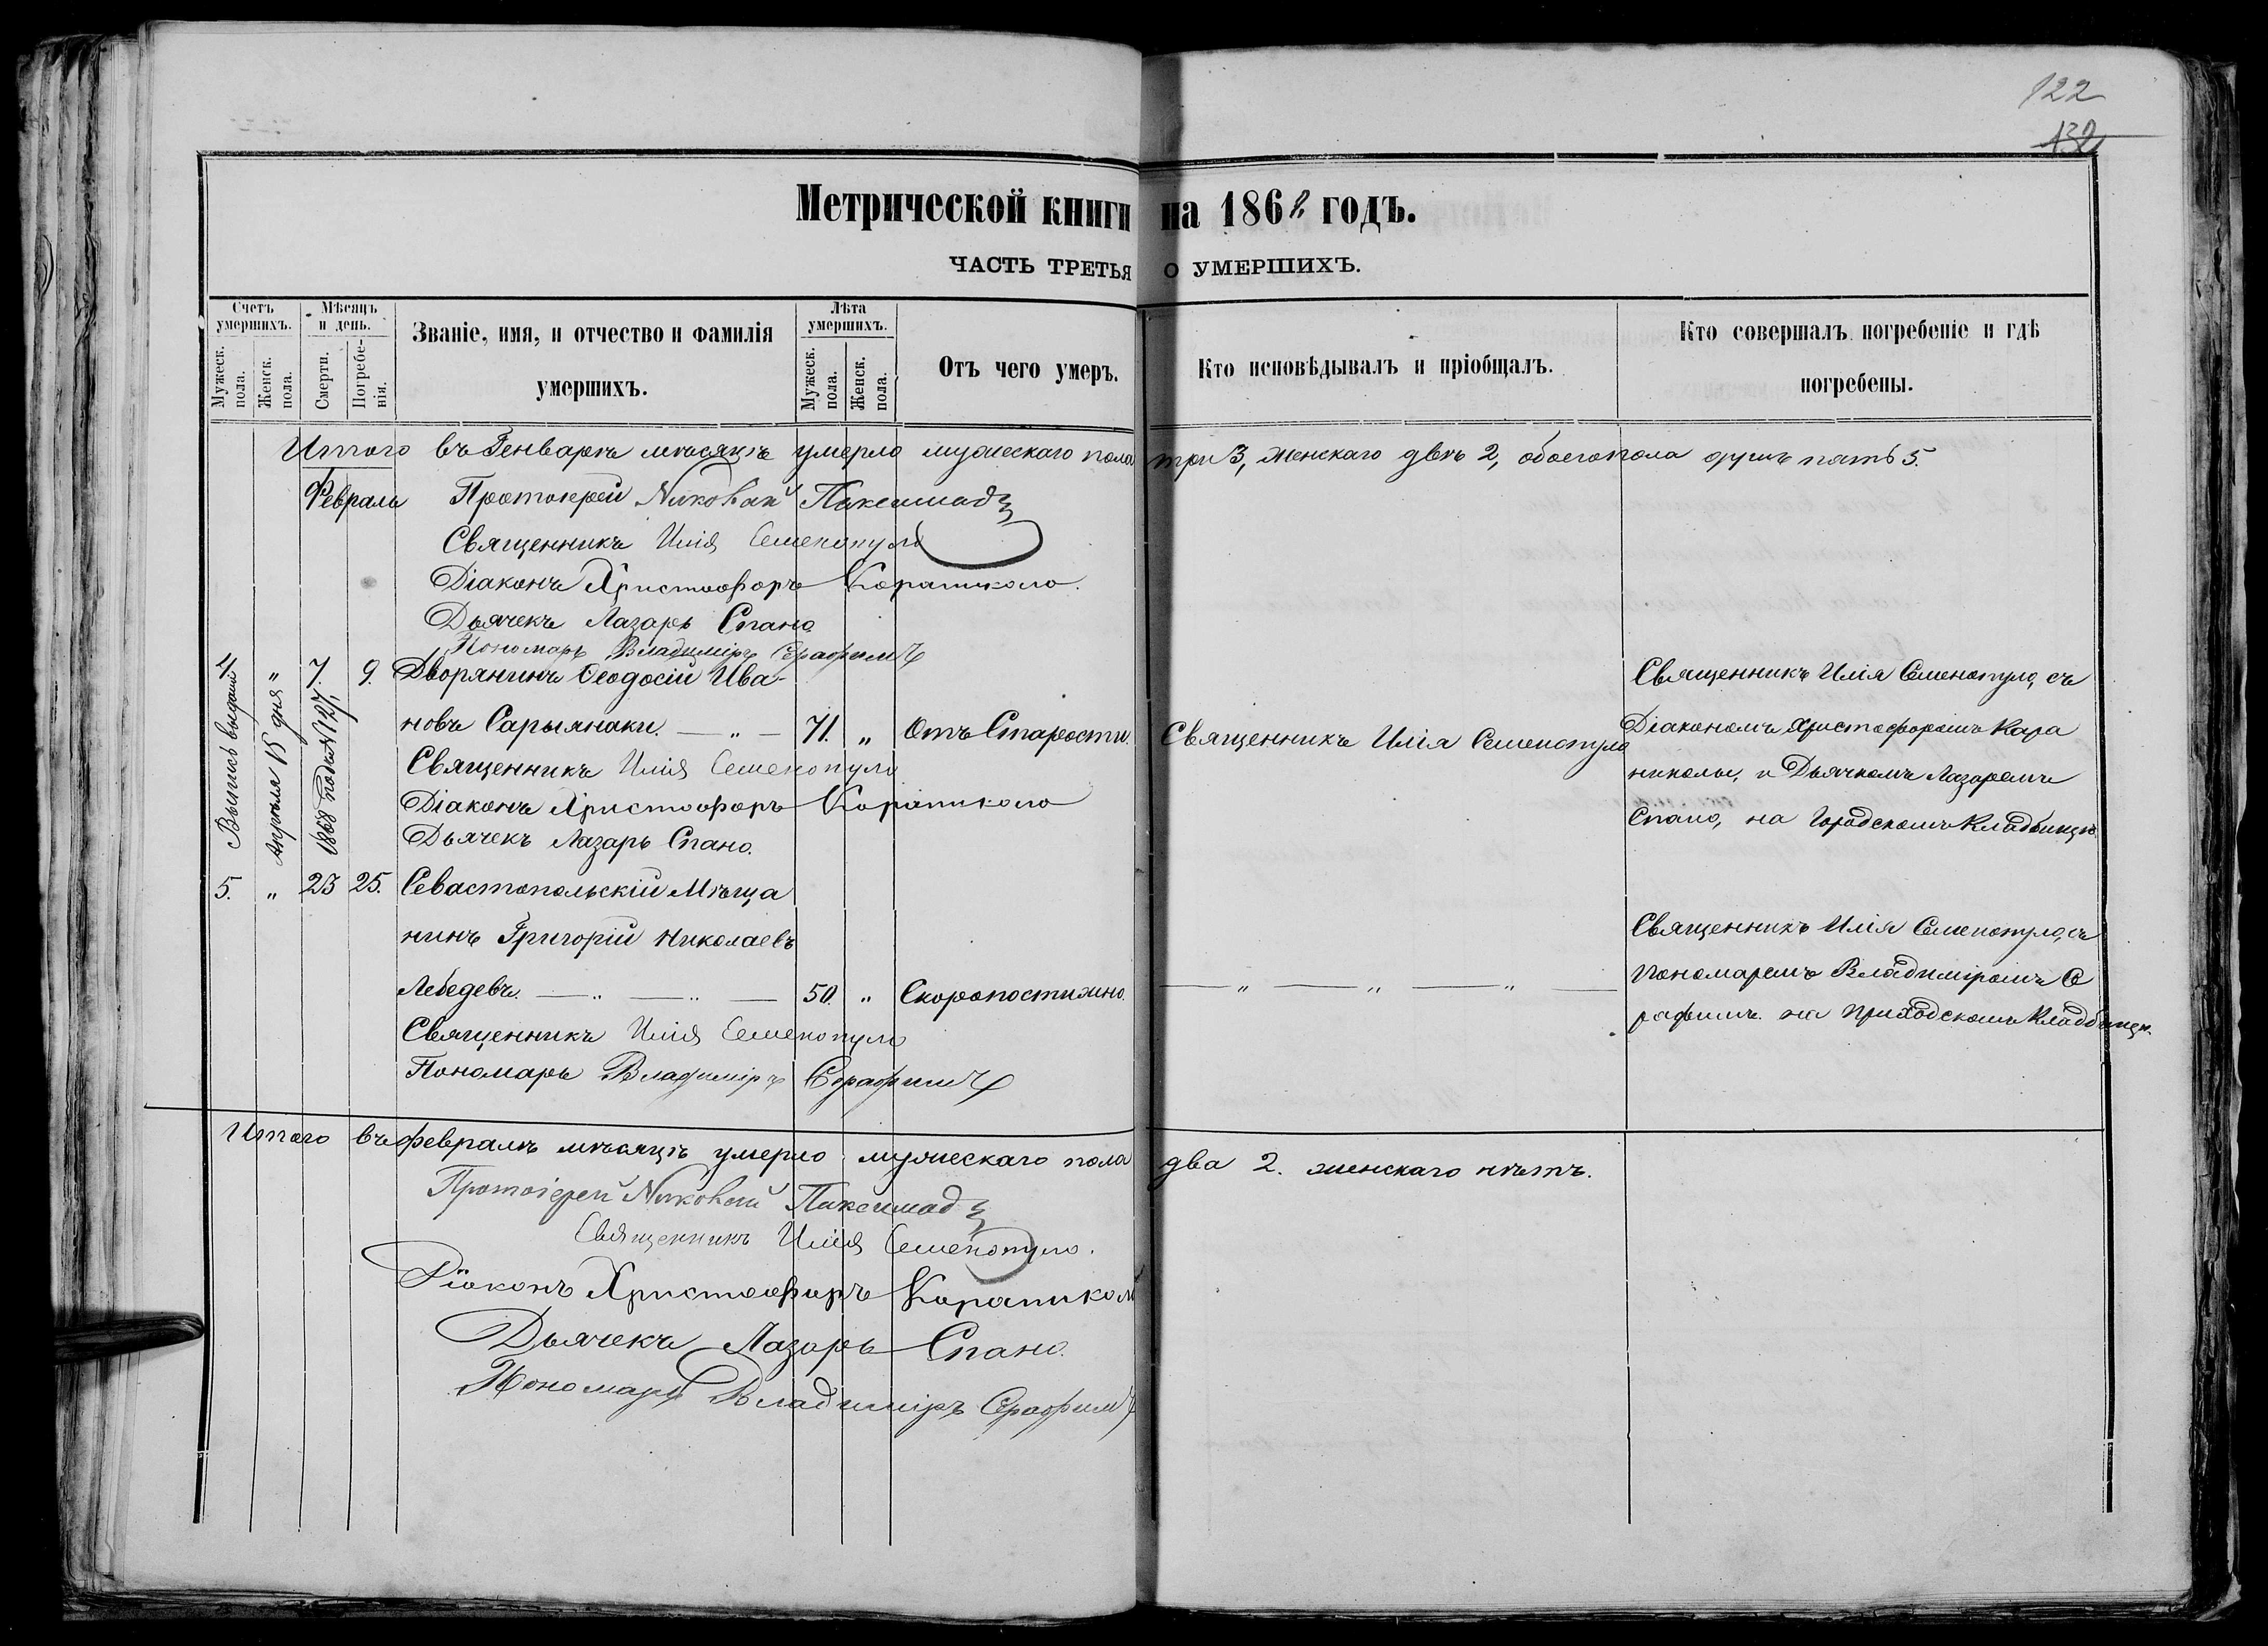 122
132
Метрической книги на 1868 годъ.
ЧАСТЬ ТРЕТЬЯ О УМЕРШИХЪ.
Счетъ умершихъ.
Мужеск. пола.
Женск. пола.
Мѣсяцъ и день.
Смерти.
Погребенія.
Званіе, имя, и отчество и фамилія умершихъ.
Лѣта умершихъ.
Мужеск. пола.
Женск. пола.
Отъ чего умеръ.
Кто исповѣдывалъ и пріобщалъ.
Кто совершалъ погребеніе и гдѣ погребены.
Итого въ Генварѣ мѣсяцѣ умерло мужескаго пола три 3, женскаго двѣ 2, обоего пола душъ пять 5.
Февраль
Протоіерей Николай Паксимадъ
Священникъ Илія Семенопуло
Діаконъ Христофоръ Караниколо.
Дьячекъ Лазарь Спано
Пономарь Владиміръ Серафимъ
4. " 7. 9. Дворянинъ Ѳеодосій Ива-
новъ Сарыянаки. — " — 71. " Отъ Старости. Священникъ Илія Семенопуло
Священникъ Илія Семенопуло, съ
Діакономъ Христофоромъ Кара
николы, и Дьячкомъ Лазаремъ
Спано, на Городскомъ Кладбищѣ.
Выпись выдана
Апрѣля 15 дня
1868 подъ № 127
Священникъ Илія Семенопуло
Діаконъ Христофоръ Караниколо
Дьячекъ Лазарь Спано.
5. " 23 25. Севастопольскій Мѣща
нинъ Григорій Николаевъ
Лебедевъ. — " — " — 50. " Скоропостижно. — " — " — " —
Священникъ Илія Семенопуло, съ
Пономаремъ Владиміромъ Се
рафимъ на Приходскомъ Кладбищѣ.
Священникъ Илія Семенопуло
Пономарь Владиміръ Серафимъ
Итого въ февралѣ мѣсяцѣ умерло мужескаго пола два 2. женскаго нѣтъ.
Протоіерей Николай Паксимадъ
Священникъ Илія Семенопуло.
Діаконъ Христофоръ Караниколо
Дьячекъ Лазарь Спано.
Пономарь Владиміръ Серафимъ